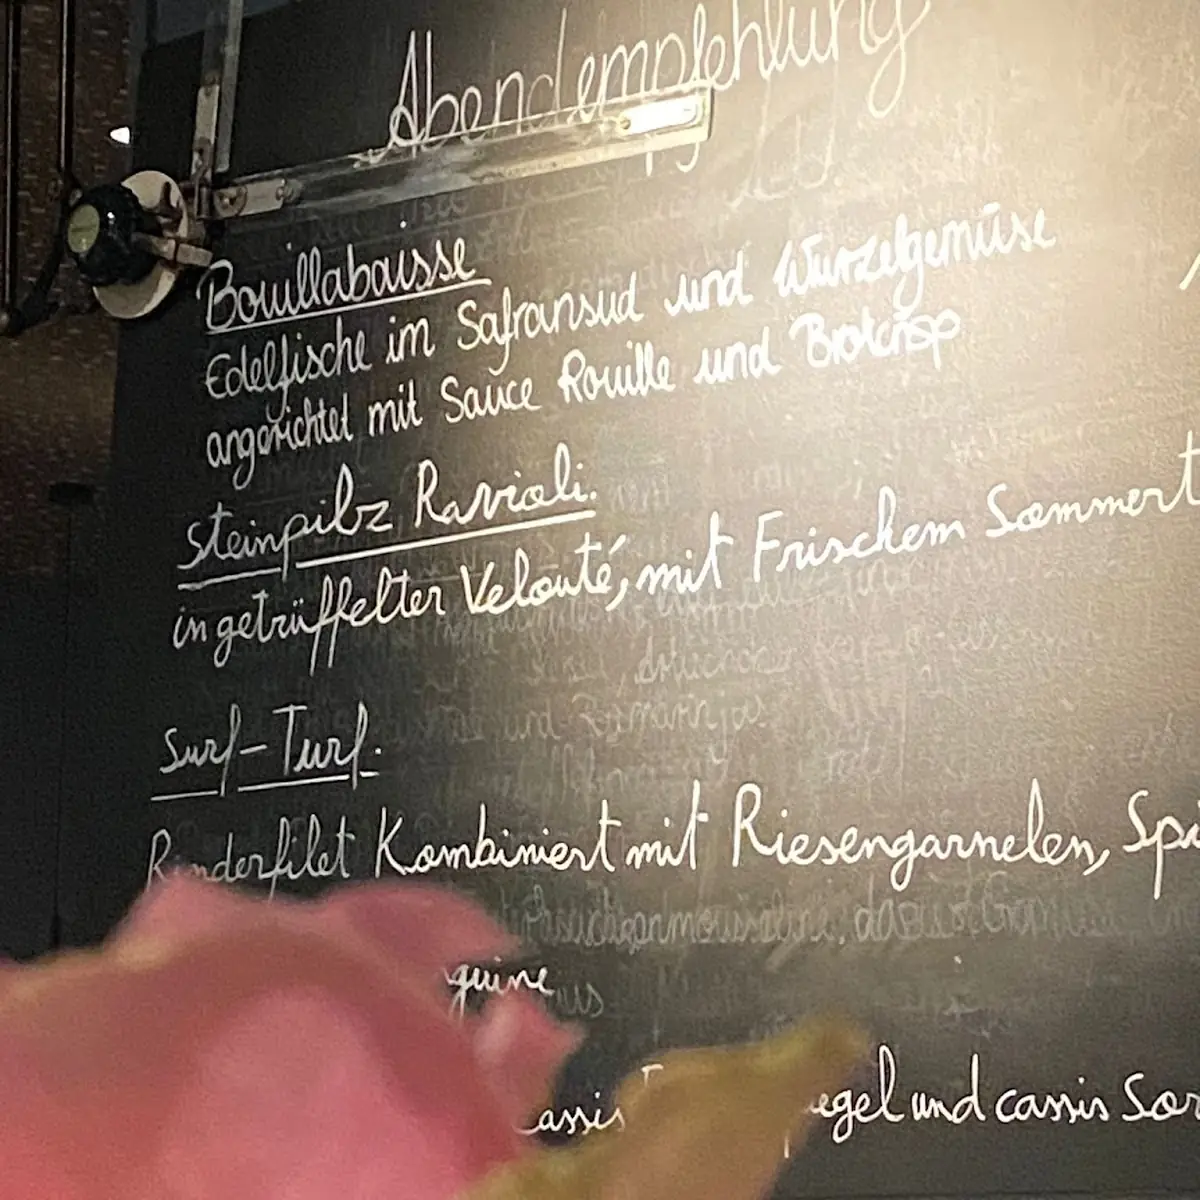 Abendempfehlung
Bouillabaisse
Edelfische im Safransud und Wurzelgemüse
angerichtet mit Sauce Rouille und Brotcrisp
Steinpilz Ravioli.
in getrüffelter Velouté, mit Frischem Sommert
Surf-Turf.
Rinderfilet Kombiniert mit Riesengarnelen, Spa
guine
assis egel und cassis Sor